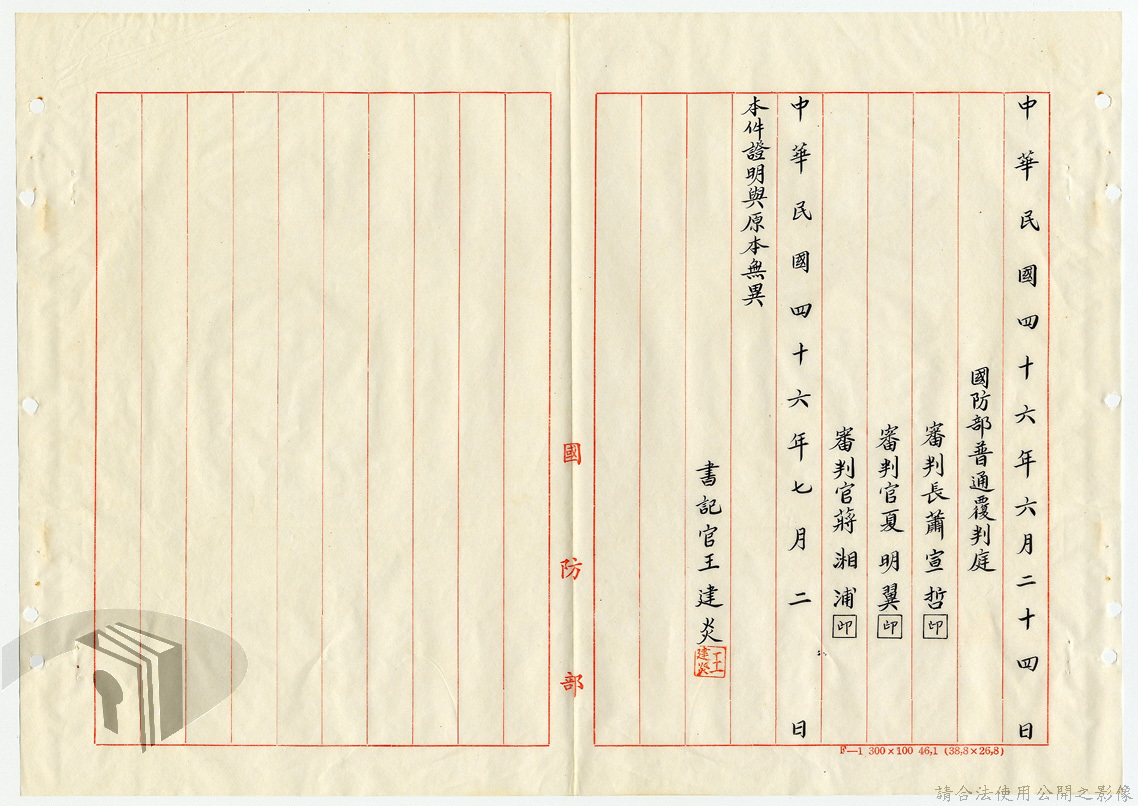 中華民國四十六年六月二十四日
國防部普通覆判庭
審判長蕭宣哲印
審判官夏明翼印
審判官蔣湘浦印
中華民國四十六年七月二日
本件證明與原本無異
書記官王建炎
王建炎
國防部
F—1 300×100 46,1 (38,8×26,8)
請合法使用公開之影像